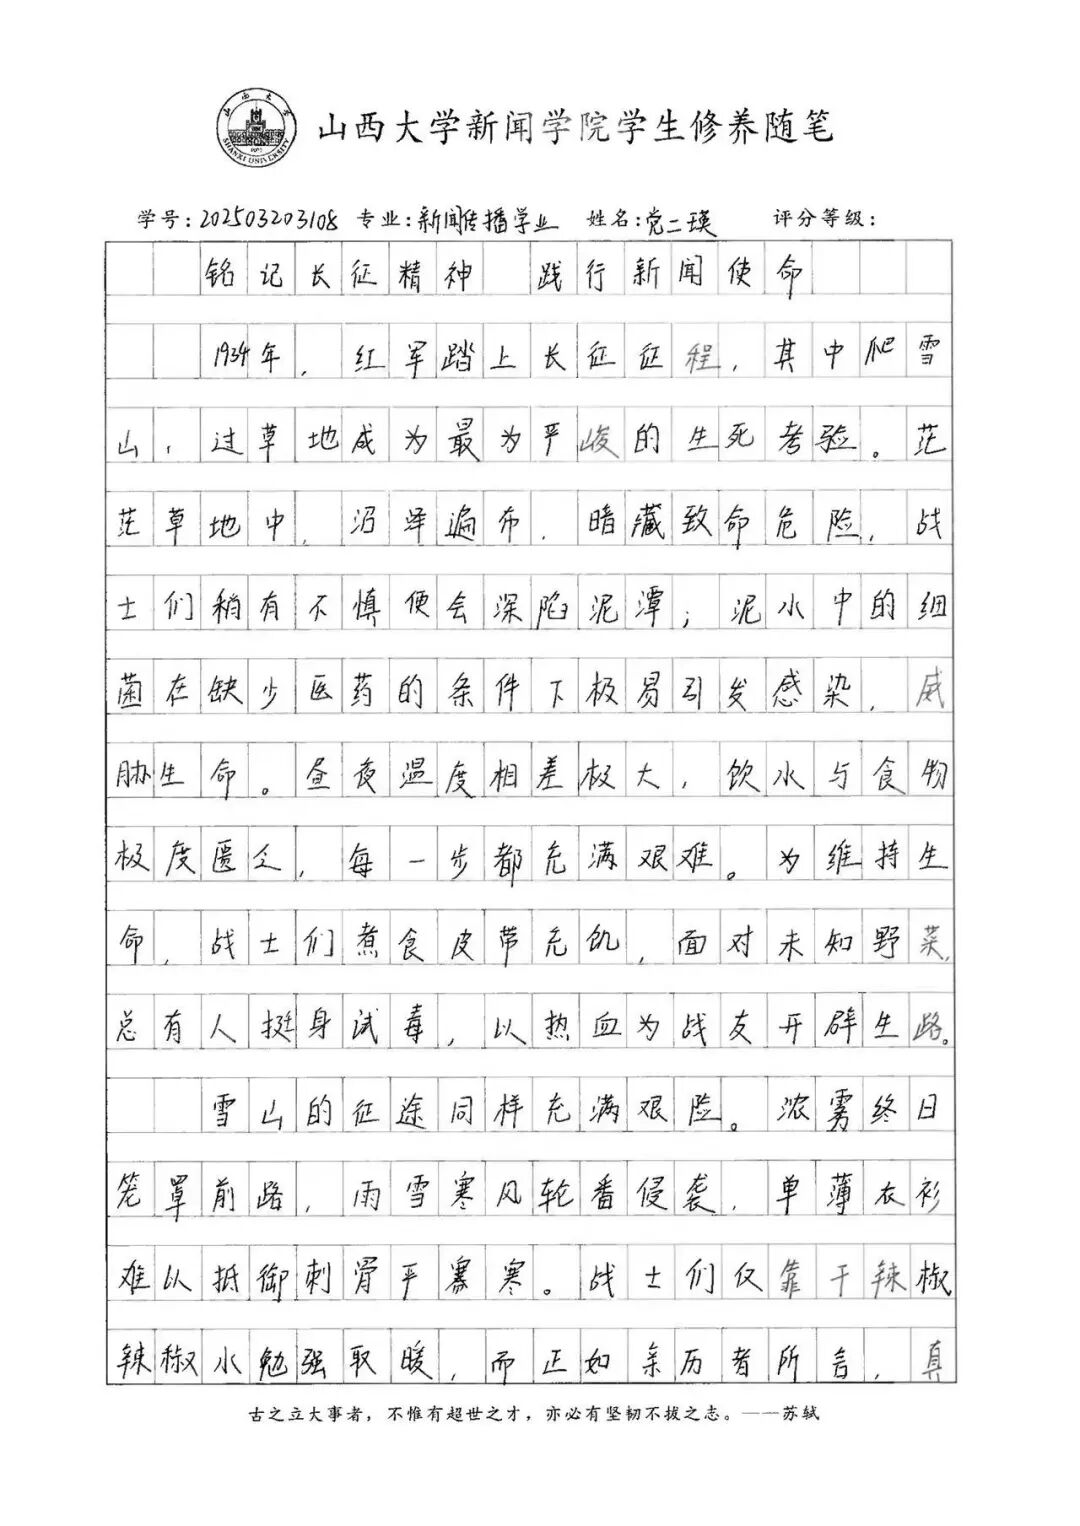 山西大学新闻学院学生修养随笔
学号:202503203108 专业:新闻传播学业 姓名:党二瑛 评分等级:
铭记长征精神 践行新闻使命
1934年,红军踏上长征征程,其中爬雪
山,过草地成为最为严峻的生死考验。茫
茫草地中,沼泽遍布,暗藏致命危险,战
士们稍有不慎便会深陷泥潭;泥水中的细
菌在缺少医药的条件下极易引发感染,威
胁生命。昼夜温度相差极大,饮水与食物
极度匮乏,每一步都充满艰难。为维持生
命,战士们煮食皮带充饥,面对未知野菜,
总有人挺身试毒,以热血为战友开辟生路。
雪山的征途同样充满艰险。浓雾终日
笼罩前路,雨雪寒风轮番侵袭,单薄衣衫
难以抵御刺骨严寒。战士们仅靠干辣椒
辣椒水勉强取暖,而正如亲历者所言,真
古之立大事者,不惟有超世之才,亦必有坚韧不拔之志。——苏轼